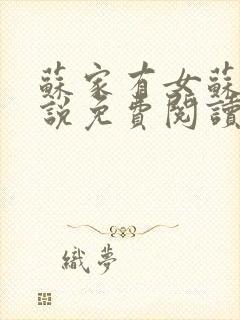 蘇家有女蘇
說免費閱讀
織夢